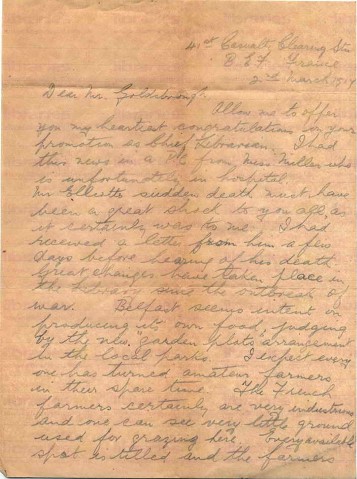 41st Casualty Clearing Stn
B.E.F. France
2nd March 1917
Dear Mr. Goldsbrough,
Allow me to offer
you my heartiest congratulations on your
promotion as Chief Librarian. I had
this news in a P.C. from Miss Miller who
is unfortunately in hospital.
Mr Elliotts sudden death must have
been a great shock to you all, as
it certainly was to me. I had
received a letter from him a few
days before hearing of his death.
Great changes have taken place in
the Library since the outbreak of
war. Belfast seems intent on
producing its own food, judging
by the new garden plots arrangement
in the local parks. I expect every
one has turned amateur farmers
in their spare time. The French
farmers certainly are very industrious
and one can see very little ground
used for grazing here. Every available
spot is tilled and the farmers